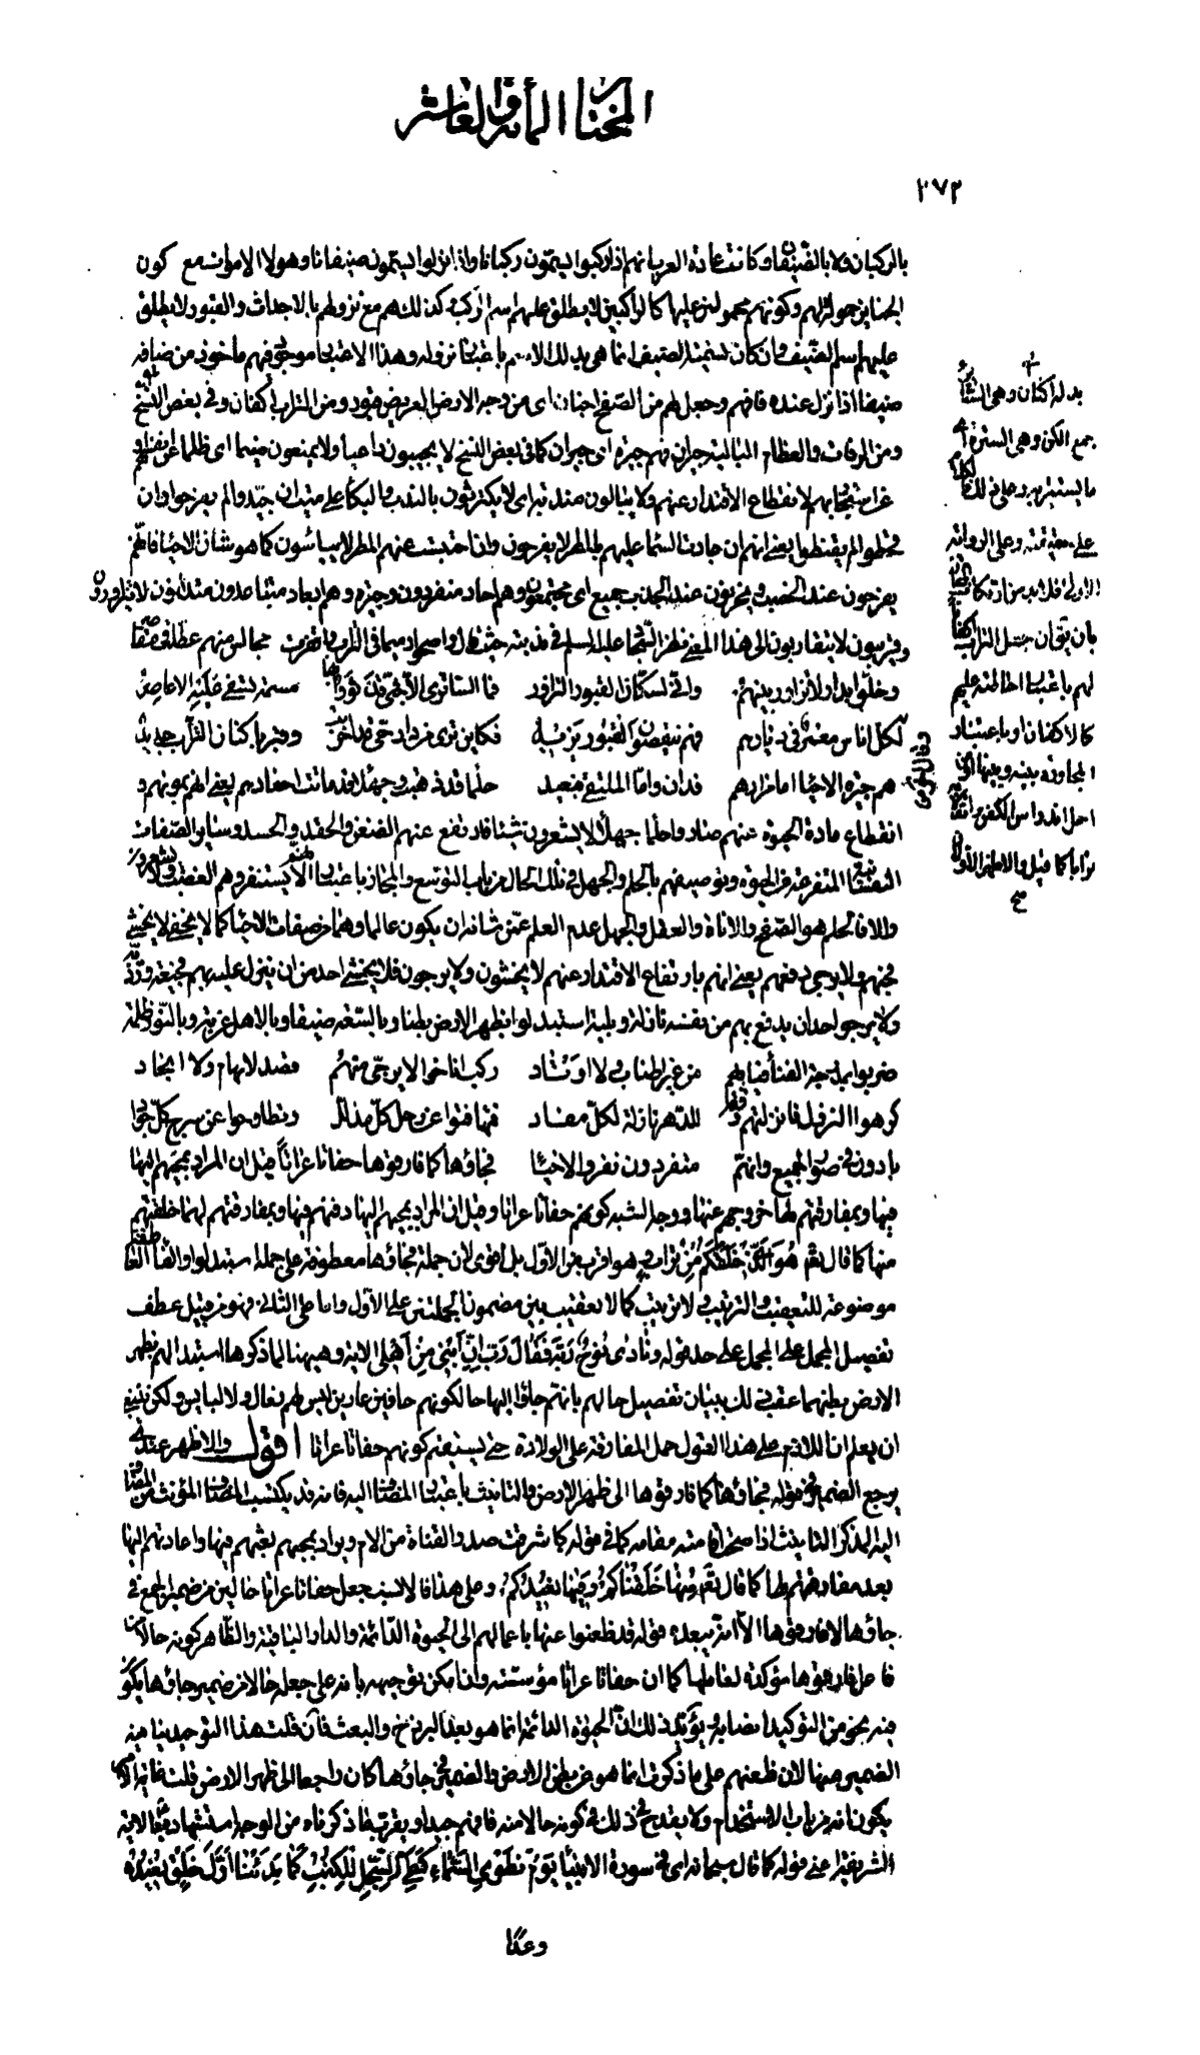 المختار المأة والعاشر
٢٧٢
بالركبان ولا بالضيفان وكانت عادة العرب انهم اذا ركبوا يسمّون ركبانا واذا نزلوا يسمّون ضيفانا وهؤلاء الاموات مع كون
الجنايز حمولة لهم وكونهم محمولين عليها كالراكبين لا يطلق عليهم اسم الركب كذلك هم مع نزولهم بالاجداث والقبور لا يطلق
عليهم اسم الضيف وان كان تسمية الضيف انما هي بذلك الاسم باعتبار نزوله وهذا الاعتبار موجود فيهم مأخوذ من ضافه
ضيفا اذا نزل عنده فافهم وجعل لهم من الصفيح اجنان اى من وجه الارض العريض قبور ومن التراب اكفان وفي بعض النسخ
ومن الرفات والعظام البالية جيران فهم جيرة اى جيران كما في بعض النسخ لا يجيبون داعيا ولا يمنعون ضيما اى ظلما عن انفسهم او
عن استجار بهم لانقطاع الاقتدار عنهم ولا يبالون مندبة اى لا يكترثون بالندب والبكاء على ميت ان جيدوا لم يفرحوا وان
قحطوا لم يقنطوا يعنى انهم ان جادت السماء عليهم بالمطر لا يفرحون واذا احتبست عنهم المطر لا ييأسون كما هو شأن الاحياء فانهم
يفرحون عند الخصب ويحزنون عند الجدب جميع اى مجتمعون وهم آحاد منفردون وجيرة وهم ابعاد متباعدون متدانون لا يتزاورون
وقريبون لا يتقاربون الى هذا المعنى نظر السجاد عليه السلم في ندبته حيث قال واضحوا رميما في التراب واقفرت مجالس منهم عطلت ومقاصر
وحلّوا بدار لا تزاور بينهم وانّى لسكان القبور التزاور فما ان ترى الا جثى قد ثووا بها مسنّمة تسفى عليه الاعاصر
لكل اناس مقبر في ديارهم فهم ينقصون والقبور تزيد فكاين ترى من دار حىّ قد اخربت وقبر باكنان التراب جديد
هم جيرة الاحياء اما مزارهم فدان واما الملتقى فبعيد حلماء قد ذهبت وجهلاء قد ماتت احقادهم يعنى انهم بموتهم و
انقطاع مادة الحيوة عنهم صاروا حلماء جهلاء لا يشعرون شيئا فارتفع عنهم الضغن والحقد والحسد وساير الصفات
النفسانية المتفرعة على الحيوة وتوصيفهم بالحلم والجهل في تلك الحال من باب التوسع والمجاز باعتبار انهم لا يستفزهم الغضب ولا يشعرون
والا فالحلم هو الصفح والاناة والعقل والجهل عدم العلم عمن شانه ان يكون عالما وهما من صفات الاحياء كما لا يخفى لا يخشى
فجعهم ولا يرجى دفعهم يعنى انهم بارتفاع الاقتدار عنهم لا يخشون ولا يرجون فلا يخشى احد من ان ينزل عليه بهم فجيعة ورزية
ولا يرجو احد ان يدفع بهم من نفسه نازلة وبلية استبدلوا بظهر الارض بطنا وبالسعة ضيقا وبالاهل غربة وبالنور ظلمة
ضربوا بمدرجة الفناء قبابهم من غير اطناب ولا اوتاد ركب اناخوا لا يرجى منهم قصد لاتهام ولا انجاد
كرهوا النزول فانزلتهم وقعها للدهر نازلة لكلّ مفاد فتهافتوا عن رحل كلّ مذلّل وتطاوحوا عن سرج كلّ جواد
بادون في صور الجميع وانهم متفردون تفرد الاحاد فجاؤها كما فارقوها حفاة عراة قيل ان المراد بمجيئهم اليها
فيها وبمفارقتهم لها خروجهم عنها ووجه الشبه كونهم حفاة عراة وقيل ان المراد بمجيئهم اليها دفنهم فيها وبمفارقتهم لها خلقتهم
منها كما قال تعالى هُوَ الَّذِي خَلَقَكُمْ مِنْ تُرَابٍ وهو اقرب من الاول بل اقوى لان جملة فجاؤها معطوفة على جملة استبدلوا والفاء العاطفة
موضوعة للتعقيب والترتيب ولا ترتيب كما لا تعقيب بين مضمون الجملتين على الاول واما على الثاني فهو من قبيل عطف
تفصيل المجمل على المجمل على حد قوله ونادى نُوحٌ رَبَّهُ فَقَالَ رَبِّ اِنَّ ابْنِي مِنْ اَهْلِي الاية وهيهنا لما ذكروا استبدالهم بظهر
الارض بطنها عقب ذلك ببيان تفصيل حالهم بانهم جاؤا اليها حالكونهم حافين عارين ليس لهم نعال ولا لباس ولكن ينبغي
ان يعلم ان اللازم على هذا القول حمل المفارقة على الولادة حتى يستقيم كونهم حفاة عراة اقول والاظهر عندى ان
يرجع الضمير في قوله فجاؤها كما فارقوها الى ظهر الارض والتانيث باعتبار المضاف اليه فانه قد يكتسب المضاف المؤنث من المضاف
اليه المذكر التانيث اذا صح اقامته مقامه كما في قوله كما شرقت صدر القناة من الدم ويراد بمجيئهم بعثهم فيها واعادتهم اليها
بعد مفارقتهم لها كما قال تعالى مِنْهَا خَلَقْنَاكُمْ وَفِيهَا نُعِيدُكُمْ وعلى هذا فالانسب جعل حفاة عراة حالين من ضمير الجمع في
جاؤها لا فارقوها الا انه يبعده قوله قد ظعنوا عنها باعمالهم الى الحيوة الدائمة والدار الباقية والظاهر كونه حالا من
فاعل فارقوها مؤكدة لعاملها كما ان حفاة عراة مؤسسة وان امكن توجيهه بانه على جعله حالا من ضمير جاؤها يكون
فيه نحو من التوكيد ايضا ويؤيد ذلك ان الحيوة الدائمة انما هو بعد البرزخ والبعث فان قلت هذا التوجيه ينافيه
الضمير عنها لان ظعنهم على ما ذكرت انما هو عن بطن الارض والضمير في جاؤها كان راجعا الى ظهر الارض قلت غاية الامر
يكون انه من باب الاستخدام ولا يقدح ذلك في كونه حالا منه فافهم جيدا ويقرب ما ذكرناه من الوجه استشهاده بالاية
الشريفة اعنى قوله كما قال سبحانه اى في سورة الانبياء يَوْمَ نَطْوِي السَّمَاءَ كَطَيِّ السِّجِلِّ لِلْكُتُبِ كَمَا بَدَئْنَا اَوَّلَ خَلْقٍ نُعِيدُهُ
وعدًا
بدله اكنان وهى الستائر
جمع الكن وهى السترة اى
ما يستتر به وعلى ذلك فالكلام
على حقيقته وعلى الرواية
الاولى فلا بد من ارتكاب المجاز
بان يقال ان جعل التراب اكفانا
لهم باعتبار احاطته عليهم
كالاكفان او باعتبار
المجاورة بينه وبينها او من
اجل اندراس الكفن وانقلابه
ترابا كما قيل والاظهر الاول
صح